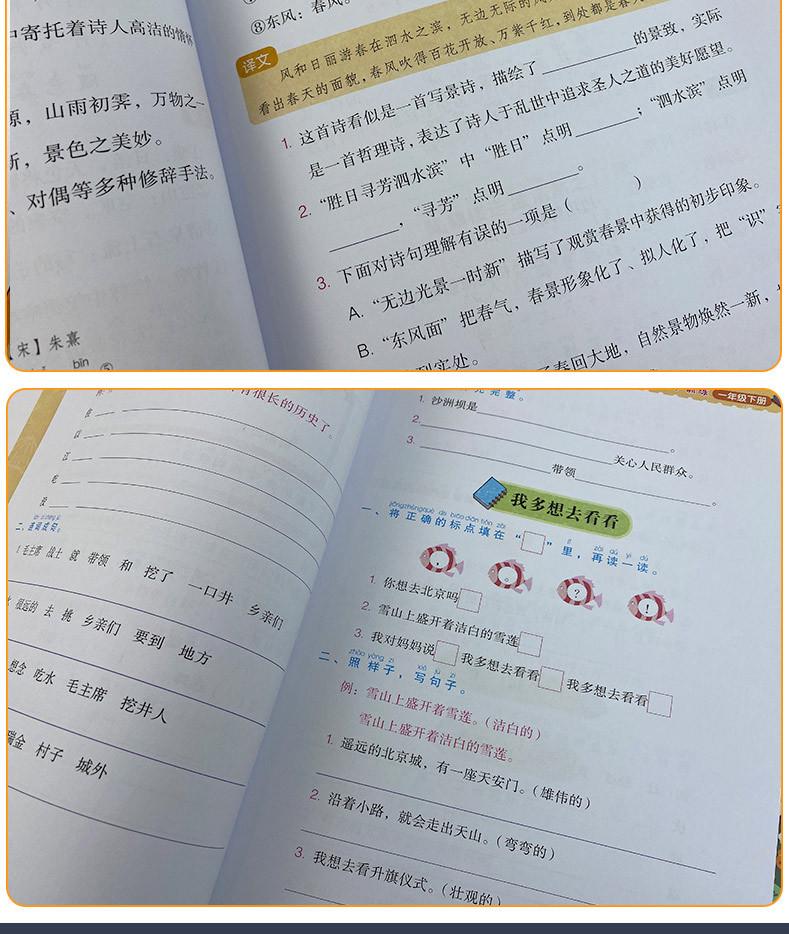 中寄托着诗人高洁的情怀
原，山雨初霁，万物之一
新，景色之美妙。
、对偶等多种修辞手法。
【宋】朱熹
bīn
⑤
⑧东风：春风。
译文
风和日丽游春在泗水之滨，无边无际的风
看出春天的面貌，春风吹得百花开放、万紫千红，到处都是春天
1. 这首诗看似是一首写景诗，描绘了______的景致，实际
是一首哲理诗，表达了诗人于乱世中追求圣人之道的美好愿望。
2. “胜日寻芳泗水滨”中“胜日”点明______；“泗水滨”点明
______，“寻芳”点明______。
3. 下面对诗句理解有误的一项是（ ）
A. “无边光景一时新”描写了观赏春景中获得的初步印象。
B. “东风面”把春气，春景形象化了、拟人化了，把“识”
到实处。
了春回大地，自然景物焕然一新，
有很长的历史了。
二、连词成句。
1. 毛主席 战士 就 带领 和 挖了 一口井 乡亲们
很远的 去 挑 乡亲们 要到 地方
想念 吃水 毛主席 挖井人
瑞金 村子 城外
训练 一年级下册
完整。
1. 沙洲坝是______。
2. ______关心人民群众。
3. ______带领______。
我多想去看看
jiāng zhèng què de biāo diǎn tián zài
一、将正确的标点填在“□”里，再读一读。
lǐ zài dú yì dú
， 。 ？ ！
1. 你想去北京吗□
2. 雪山上盛开着洁白的雪莲□
3. 我对妈妈说□我多想去看看□我多想去看看□
zhào yàng zi xiě jù zi
二、照样子，写句子。
例：雪山上盛开着雪莲。（洁白的）
雪山上盛开着洁白的雪莲。
1. 遥远的北京城，有一座天安门。（雄伟的）
2. 沿着小路，就会走出天山。（弯弯的）
3. 我想去看升旗仪式。（壮观的）